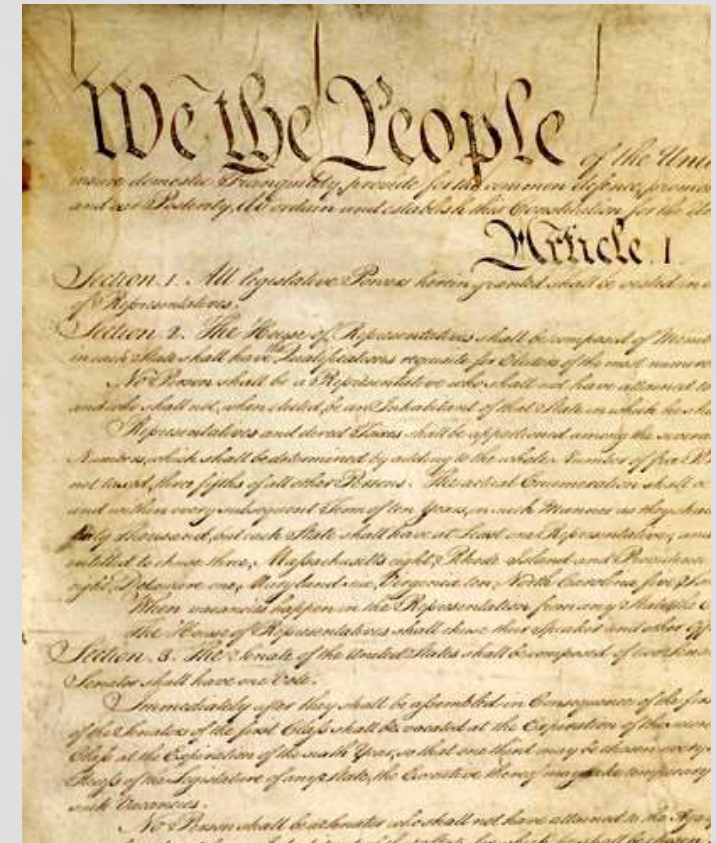 We the People of the Uni
insure domestic Tranquility, provide for the common defence, promo
and our Posterity, do ordain and establish this Constitution for the Un
Article. I.
Section. 1. All legislative Powers herein granted shall be vested in a
of Representatives.
Section. 2. The House of Representatives shall be composed of Memb
in each State shall have the Qualifications requisite for Electors of the most numero
No Person shall be a Representative who shall not have attained to
and who shall not, when elected, be an Inhabitant of that State in which he sha
Representatives and direct Taxes shall be apportioned among the severa
Numbers, which shall be determined by adding to the whole Number of free P
not taxed, three fifths of all other Persons. The actual Enumeration shall be
and within every subsequent Term of ten Years, in such Manner as they shal
thirty Thousand, but each State shall have at Least one Representative; and
entitled to chuse three, Massachusetts eight, Rhode Island and Providence
eight, Delaware one, Maryland six, Virginia ten, North Carolina five, Sou
When vacancies happen in the Representation from any State, the E
The House of Representatives shall chuse their Speaker and other Off
Section. 3. The Senate of the United States shall be composed of two Sena
Senator shall have one Vote.
Immediately after they shall be assembled in Consequence of the firs
of the Senators of the first Class shall be vacated at the Expiration of the secon
Class at the Expiration of the sixth Year, so that one third may be chosen every
Recess of the Legislature of any State, the Executive thereof may make temporary
such Vacancies.
No Person shall be a Senator who shall not have attained to the Age